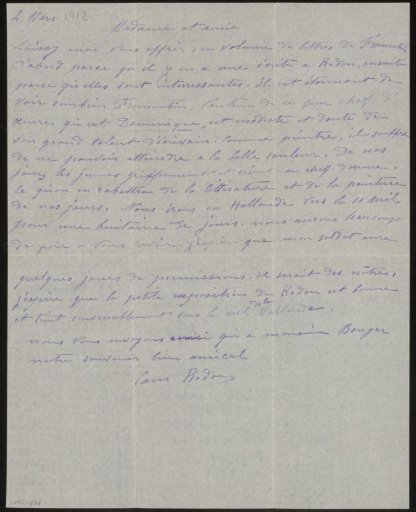 4 Mars 1912
Madame et amie
Laissez moi vous offrir, un volume de lettres de Fromentin
d'abord parce qu'il y en a une écrite a Redon, ensuite
parce qu'elles sont interessantes. Il est étonnant de
voir combien Fromentin, l'auteur de ce pur chef d'
œuvres qu'est Dominique, est modeste et doute de
son grand talent d'écrivain. Comme peintre, il souffre
de ne pouvoir atteindre a la belle couleur. De nos
jours les jeunes griffonnent et crient au chef d'œuvre.
Ce qu'on en rabattra de la littérature et de la peinture
de nos jours. Nous irons en Hollande vers le 10 avril
pour une huitaine de jours. nous aurons beaucoup
de joie a vous revoir. j'espère que mon soldat aura
quelques jours de permissions. il serait des nôtres.
j'espère que la petite exposition de Redon est bonne
et tient convenablement sous le ciel de la Hollande.
nous vous envoyons ainsi qu'a monsieur Bonger
notre souvenir bien amical
Redon